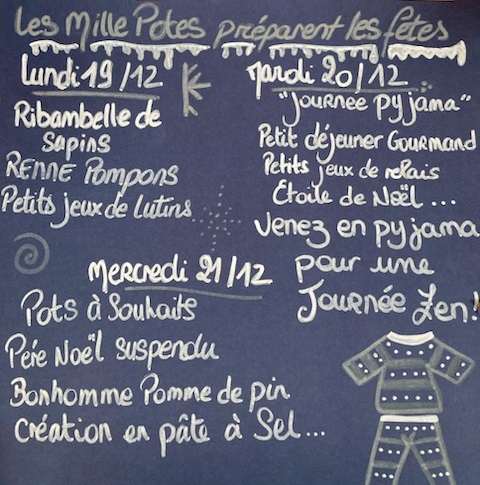 Les Mille Potes préparent les fêtes
Lundi 19/12
Ribambelle de
Sapins
RENNE Pompons
Petits jeux de Lutins
Mardi 20/12
"Journée pyjama"
Petit déjeuner Gourmand
Petits jeux de relais
Etoile de Noël ...
Venez en pyjama
pour une
Journée Zen!
Mercredi 21/12
Pots à Souhaits
Père Noël suspendu
Bonhomme Pomme de pin
Création en pâte à Sel...